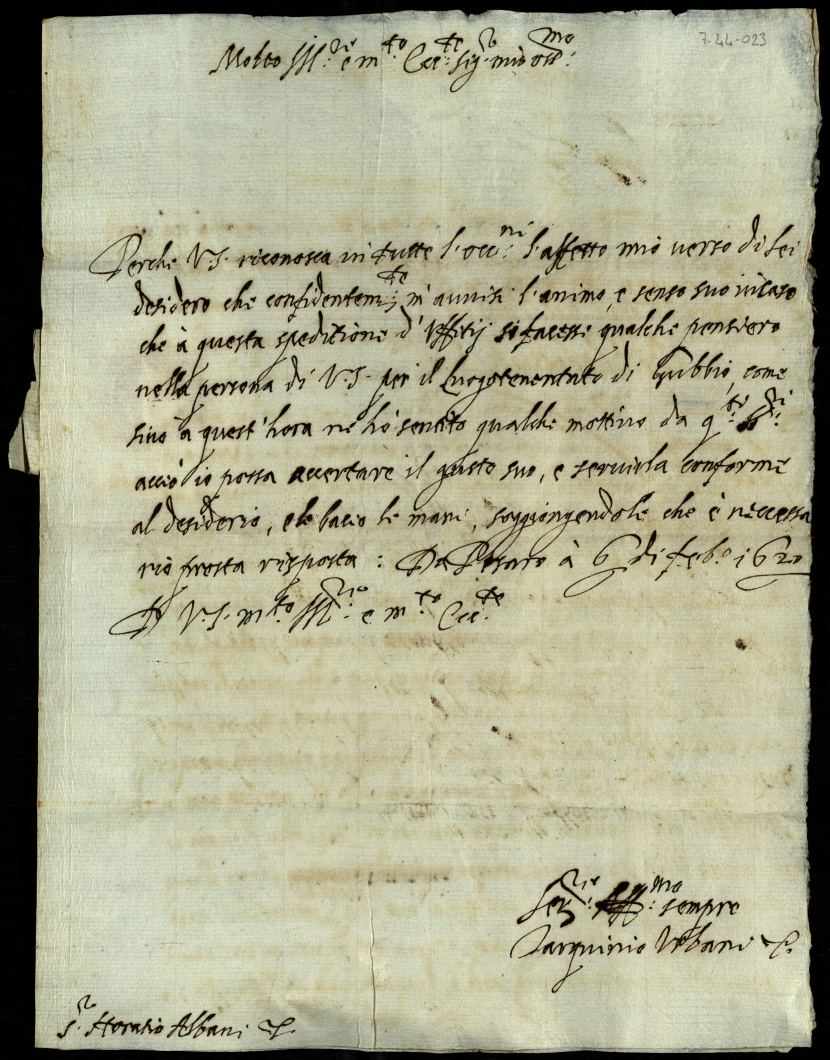 7-44-023
Molto Ill.re e m.to Ecc.te Sig.r mio oss.mo
Perche V.S. riconosca in tutte l'occ.ni l'affetto mio verso di Lei
desidero che confidentem.te m'avvisi l'animo, e senso suo in caso
che à questa speditione d'Uffitij si facesse qualche pensiero
nella persona di V.S. per il Luogotenentato di Gubbio, come
sino a quest'hora ne hò sentito qualche mottivo da q.ti S.ri
acciò io possa accertare il gusto suo, e servirla conforme
al desiderio, e le bacio le mani, soggiongendole che è necessa
rio presta risposta: Da Pesaro à 6 di feb.o 1620
D V.S. m.to Ill.re e m.to Ecc.te
Ser.re Aff.mo sempre
Tarquinio Urbani
S.r Horatio Albani